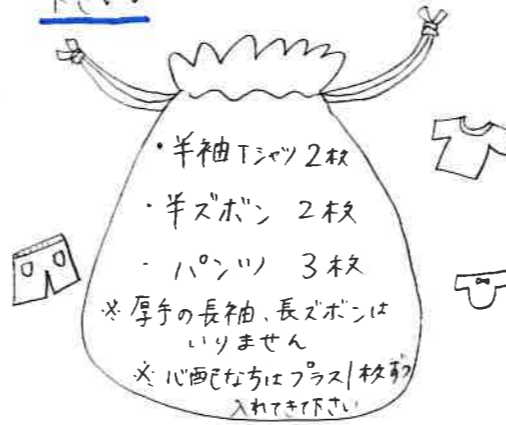 下さい
・半袖Tシャツ 2枚
・半ズボン 2枚
・パンツ 3枚
※厚手の長袖、長ズボンは
いりません
※心配な方はプラス1枚ずつ
入れてきて下さい